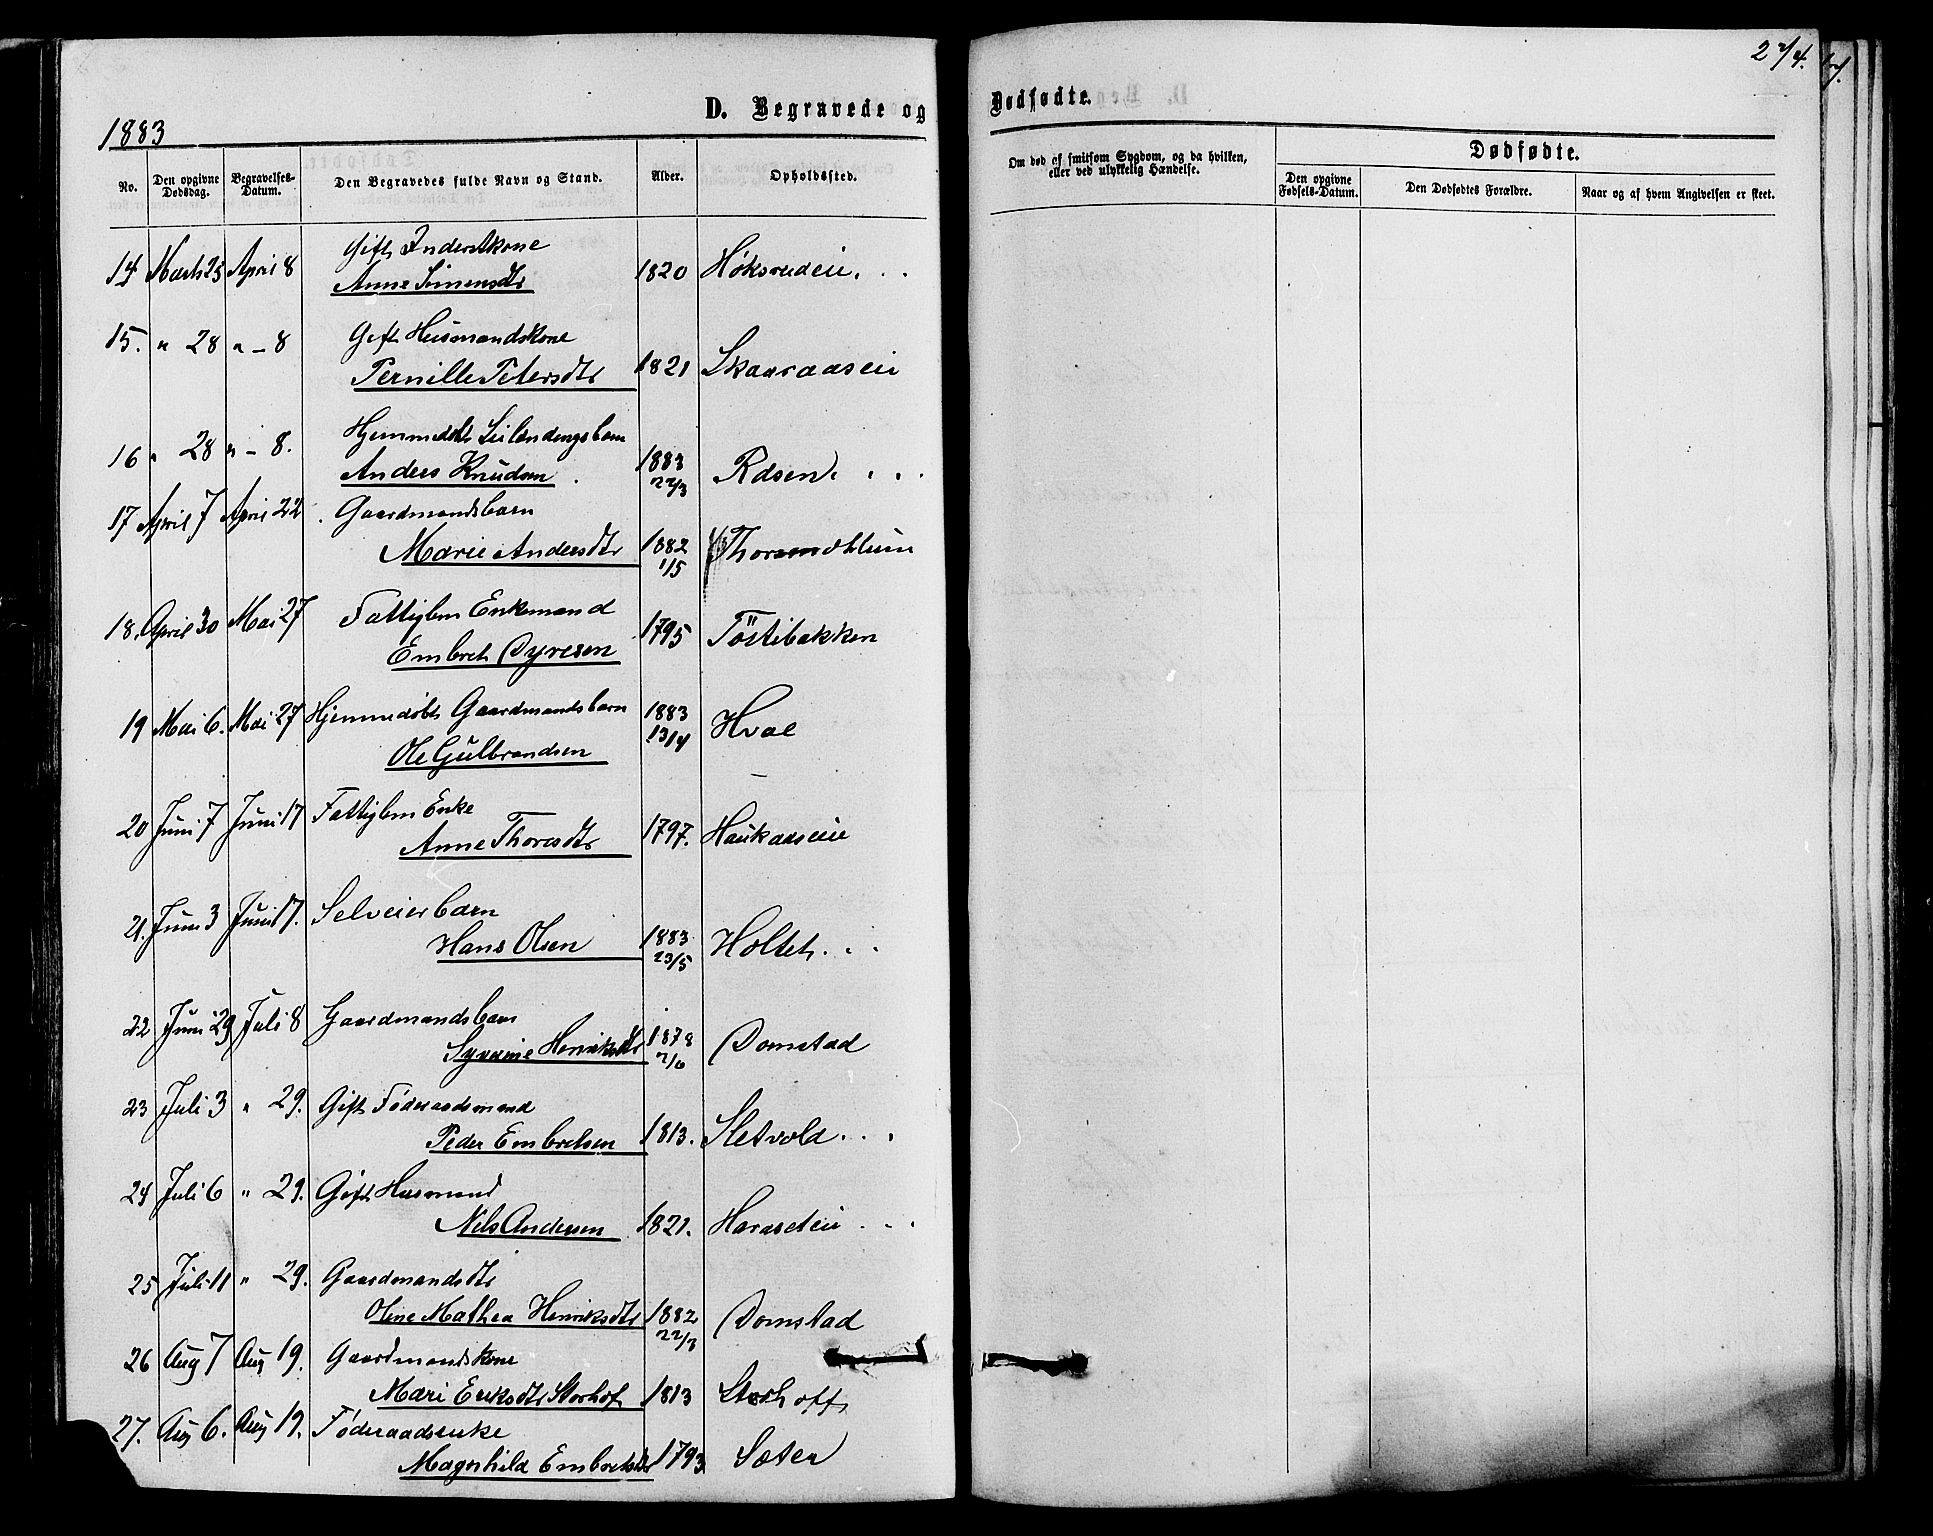 1883
D. Begravede og
No. Den opgivne Dødsdag. Begravelses-Datum. Den Begravedes fulde Navn og Stand. Alder. Opholdssted.
14 Marts 25 April 8 Gift Inderstkone
Anne Simensdtr 1820 Høksrudeie
15. " 28 " - 8 Gift Husmandskone
Pernille Petersdtr 1821 Skaaraaseie
16 " 28 " - 8. Hjemmedøbt Leilændingsbarn
Anders Knudsen 1883 22/3 Rdsen
17 April 7 April 22 Gaardmandsbarn
Marie Andersdtr 1882 1/5
18. April 30 Mai 27 Fattiglem Enkemand
Embret Dyresen 1795 Töstibakken
19 Mai 6. Mai 27 Hjemmedøbt Gaardmandsbarn
Ole Gulbrandsen 1883 13/4 Hvae
20 Juni 7 Juni 17 Fattiglem Enke
Anne Thoresdtr 1797. Haukaaseie
21. Juni 3 Juni 17. Selveierbarn
Hans Olsen 1883 23/5 Holtet
22 Juni 29 Juli 8 Gaardmandsbarn
Syverine Henriksdtr 1878 2/6 Domstad
23 Juli 3 " 29. Gift Føderaadsmand
Peder Embretsen 1813. Sletvold
24 Juli 6 " 29. Gift Husmand
Nils Andersen 1821. Haraseteie
25 Juli 11 " 29. Gaardmandsdtr
Oline Mathea Henriksdtr 1882 Domstad
26 Aug 7 Aug 19. Gaardmandskone
Mari Eriksdtr Storhof 1813 Storhoff
27. Aug 6. Aug 19. Føderaadsenke
Magnhild Embretsdtr 1793 Sæter
2 2/4.
Dødfødte.
Om død af smitsom Sygdom, og da hvilken, eller ved ulykkelig Hændelse.
Dødfødte.
Den opgivne Fødsels-Datum. Den Dødfødtes Forældre. Naar og af hvem Angivelsen er skeet.